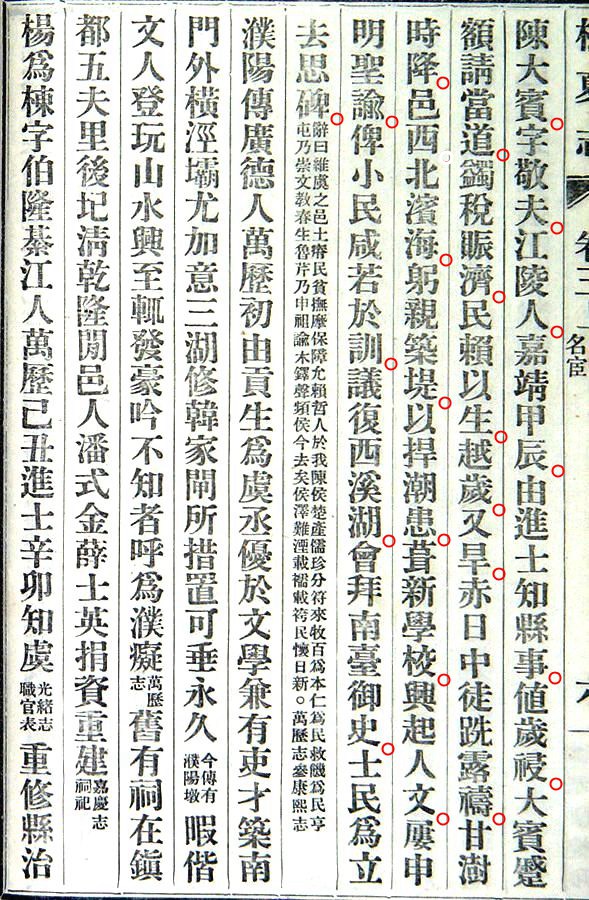 卷三
名宦
陳大賓字敬夫江陵人嘉靖甲辰由進士知縣事値歲祲大賓蹙
額請當道蠲稅賑濟民賴以生越歲又旱赤日中徒跣露禱甘澍
時降邑西北濱海躬親築堤以捍潮患葺新學校興起人文屢申
明聖諭俾小民咸若於訓議復西溪湖會拜南臺御史士民爲立
去思碑辭曰維虞之邑土瘠民貧撫摩保障允賴哲人於我陳侯楚產儒珍分符來牧百爲本仁爲民救饑爲民亨
屯乃崇文教春生魯芹乃申祖諭木鐸聲頻侯今去矣侯澤難湮載襦載袴民懷日新。萬歷志參康熙志
濮陽傳廣德人萬歷初由貢生爲虞丞優於文學兼有吏才築南
門外橫涇壩尤加意三湖修韓家閘所措置可垂永久今傳有濮陽墩暇偕
文人登玩山水興至輒發豪吟不知者呼爲濮癡萬歷志舊有祠在鎮
都五夫里後圯淸乾隆閒邑人潘式金薛士英捐資重建嘉慶志祠祀
楊爲棟字伯隆綦江人萬歷己丑進士辛卯知虞光緒志職官表重修縣治